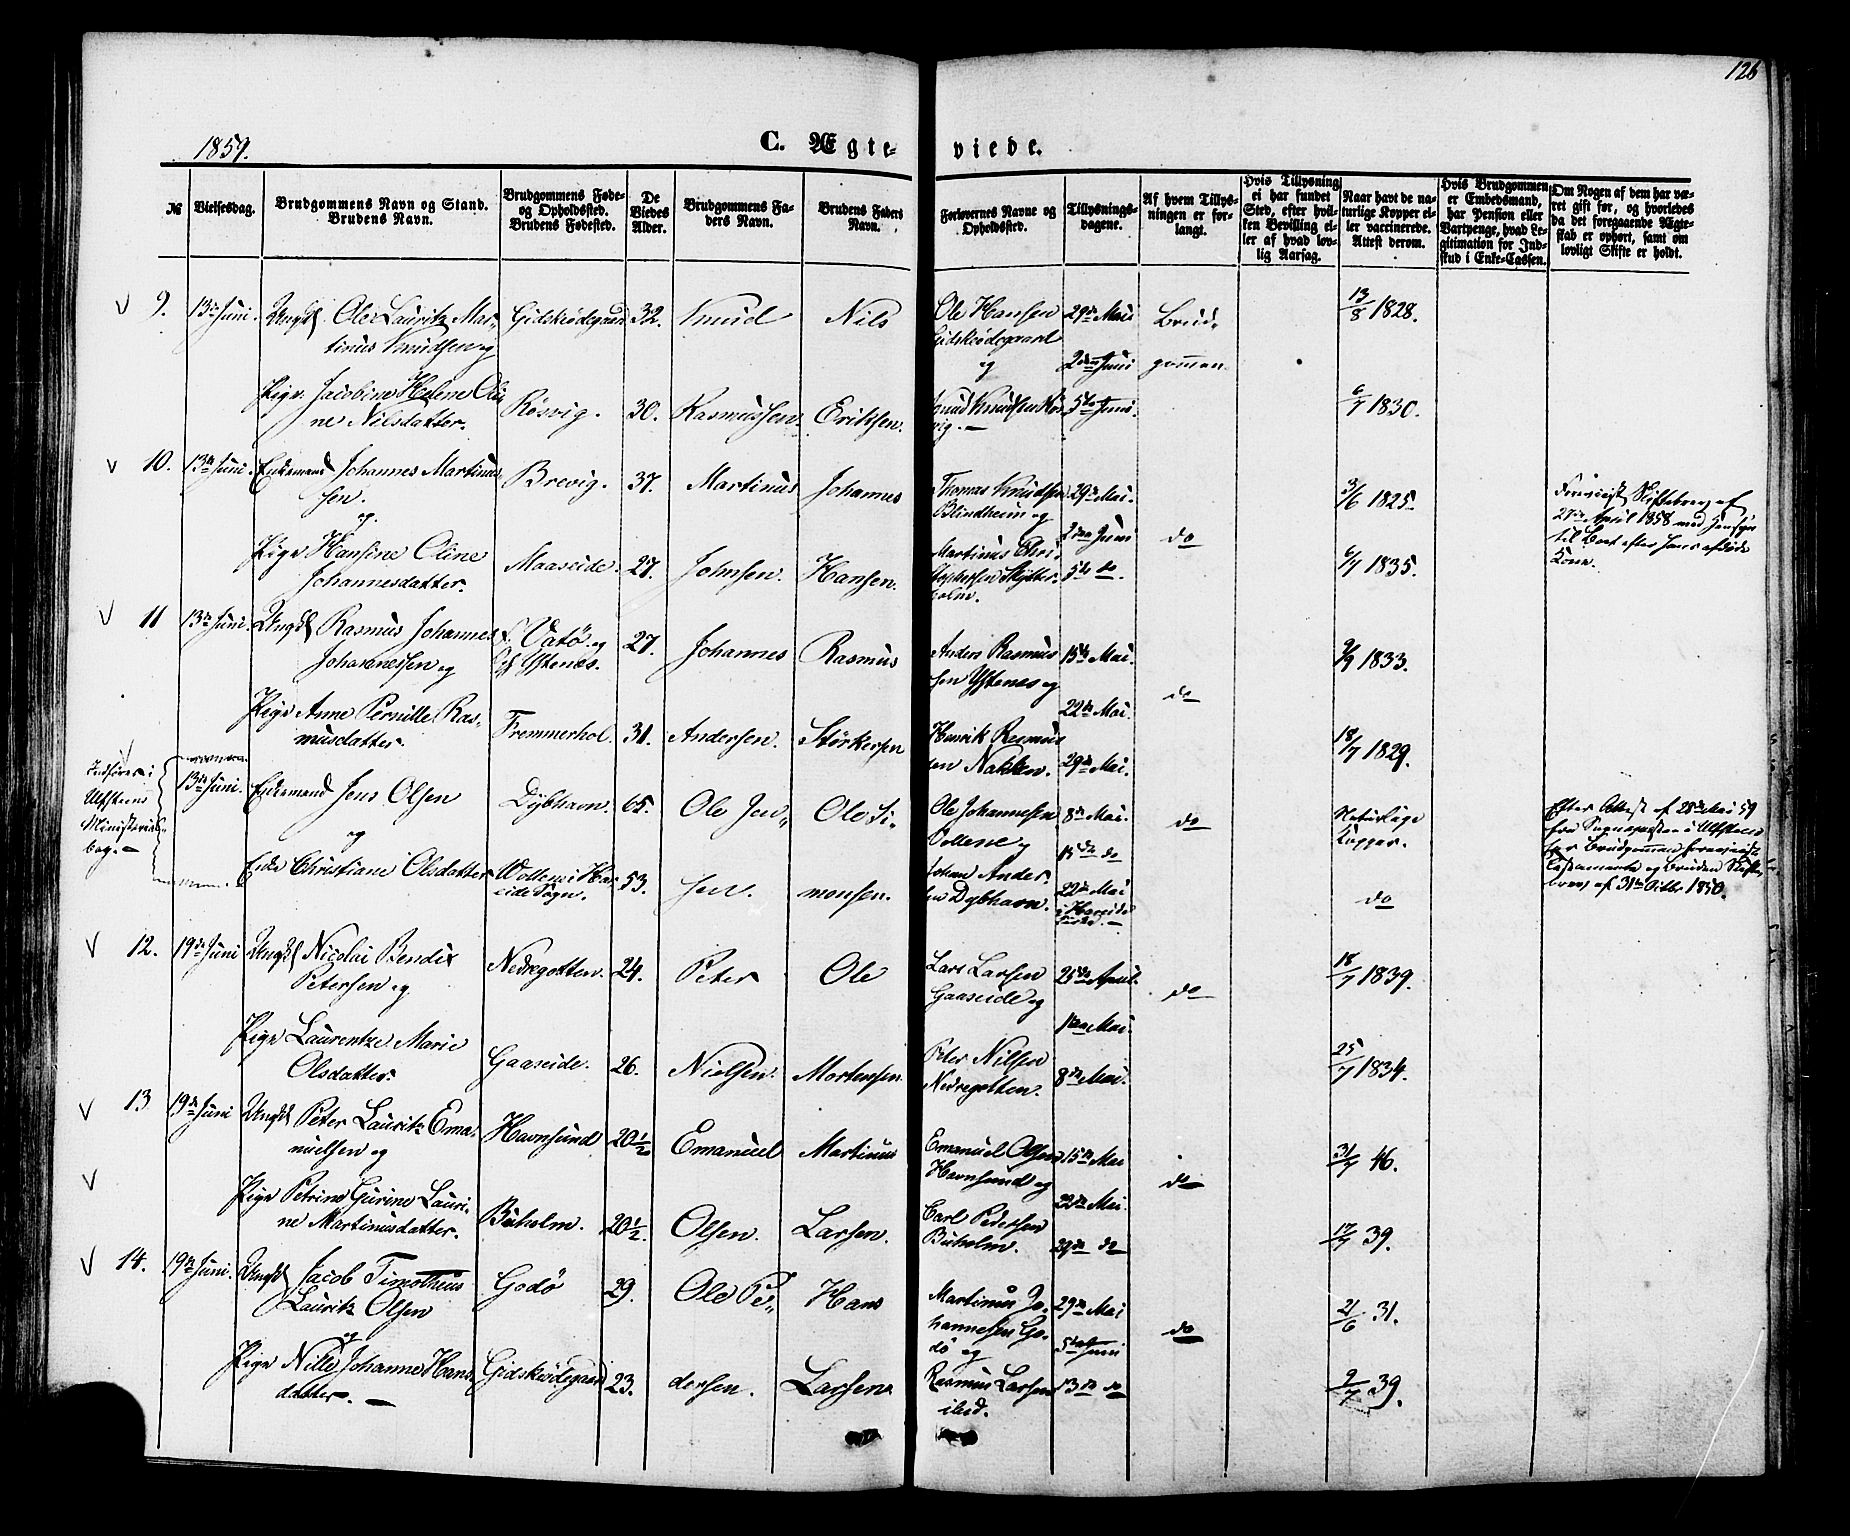 126
1859.
C. Ægte-viede.
№
Vielsesdag.
Brudgommens Navn og Stand.
Brudens Navn.
Brudgommens Føde-
og Opholdssted.
Brudens Fødested.
De
Viedes
Alder.
Brudgommens Fa-
ders Navn.
Brudens Faders
Navn.
Forlovernes Navne og
Opholdssted.
Tillysnings-
dagene.
Af hvem Tillys-
ningen er for-
langt.
Hvis Tillysning
ei har fundet
Sted, efter hvil-
ken Bevilling el-
ler af hvad lov-
lig Aarsag.
Naar havt de na-
turlige Kopper el-
ler vaccinerede.
Attest derom.
Hvis Brudgommen
er Embedsmand,
har Pension eller
Vartpenge, hvad Le-
gitimation for Ind-
skud i Enke-Cassen.
Om Nogen af dem har væ-
ret gift før, og hvorledes
da det foregaaende Ægte-
skab er ophørt, samt om
lovligt Skifte er holdt.
9. 13de Juni. Ungk Ole Lauritz Mar-
tinus Knudsen og
Gidskeødegaard 32. Knud Nils
Ole Hansen
Gidskeødegaard
og
29de Mai
2den Juni
Brud-
gommen
13/8 1828.
Pige Jacobine Helene Oli-
ne Nilsdatter.
Røsvig. 30. Rasmussen. Eriksen.
Knud Knudsen Røs-
vig. —
5te Juni
6/7 1830.
10. 13de Juni. Enkemand Johannes Martinus-
sen.
og
Brevig. 37. Martinus Johannes
Thomas Knudsen
Blindheim og
29de Mai.
2den Juni
do
3/6 1825.
Foreviist Skiftebrev af
27de April 1858 med Hensyn
til Boet efter hans afdøde
Kone.
Pige Hansine Oline
Johannesdatter.
Maaseide. 27. Johnsen. Hansen.
Martinus Chri-
stophersen Skytter-
holm.
5te do.
6/7 1835.
11 13de Juni. Ungk Rasmus Johannes
Johannessen og
F. Vatø og
Oph Ystenes.
27. Johannes Rasmus
Anders Rasmus
sen Ystenes og
15de Mai.
22de Mai.
do
9/9 1833.
Pige Anne Pernille Ras-
musdatter.
Fremmerhol. 31. Andersen. Størkersen
Henrik Rasmus
sen Nakken.
29de Mai.
18/7 1829.
Indføres i
Ulfsteens
Ministerial-
bog. —
13de Juni. Enkemand Jens Olsen
og
Dybhavn. 65. Ole Jen- Ole Si-
Ole Johannesen
8de Mai.
15de do
do
Naturlige
Kopper.
Efter Attest af 28de Mai 59
fra Sognepresten i Ulfsteen
har Brudgommen foreviist
Testamente og Bruden Skifte-
brev af 31te Octbr 1850.
Enke Christiane Olsdatter
Wollene i Ha-
reide Sogn.
53. sen. monsen.
Johan Ander-
sen Dybhavn.
22de Mai
i Hareide
Kirke. —
do
12. 19de Juni Ungk Nicolai Bendix
Petersen og
Nedregotten. 24. Peter Ole
Lars Larsen
Gaaseide og
25de April.
1ste Mai.
do
18/7 1839.
Pige Laurentze Marie
Olsdatter.
Gaaseide. 26. Nielsen. Mortensen.
Peter Nilsen
Nedregotten.
8de Mai.
25/7 1834.
13 19de Juni Ungk Peter Lauritz Ema-
nuelsen og
Havnsund 20 1/2 Emanuel Martinus
Emanuel Olsen
Havnsund og
15de Mai
22de Mai.
do
31/7 46.
Pige Petrine Gurine Lauri-
ne Martinusdatter.
Buholm. 20 1/2. Olsen. Larsen.
Carl Pedersen
Buholm.
29de do
17/7 39.
14. 19de Juni. Ungk Jacob Timotheus
Lauritz Olsen
og
Godø 29. Ole Pe- Hans
Martinus Jo-
hannesen Go-
dø og
29de Mai
5te Juni
do
21/6 31.
Pige Nille Johanne Hans
datter. —
Gidskeødegaard 23. dersen. Larsen.
Rasmus Larsen
ibid.
13de do
9/7 39.